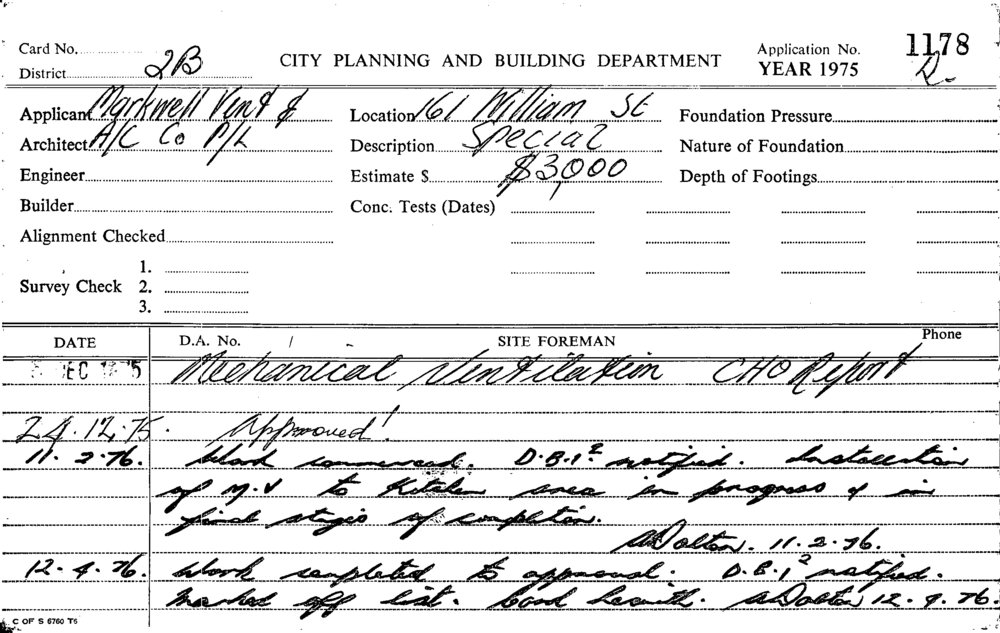 Card No. 
District 2B
CITY PLANNING AND BUILDING DEPARTMENT
Application No. 1178
YEAR 1975 R.
Applicant Markwell Vent &
Architect A/C Co P/L
Engineer
Builder
Alignment Checked
Survey Check 1.
2.
3.
Location 161 William St
Description Special
Estimate $ $3,000
Conc. Tests (Dates)
Foundation Pressure
Nature of Foundation
Depth of Footings
DATE D.A. No. / - SITE FOREMAN Phone
DEC 1975 Mechanical Ventilation CHO Report
24.12.75. Approved!
11. 2. 76. Work commenced. D.B.I² notified. Installation
of M.V to Kitchen area in progress & in
final stages of completion.
A Dalton. 11. 2. 76.
12. 4. 76. Work completed to approval. D.B.I² notified.
Marked off list. Card herewith. A Dalton 12. 4. 76.
C OF S 6760 T6